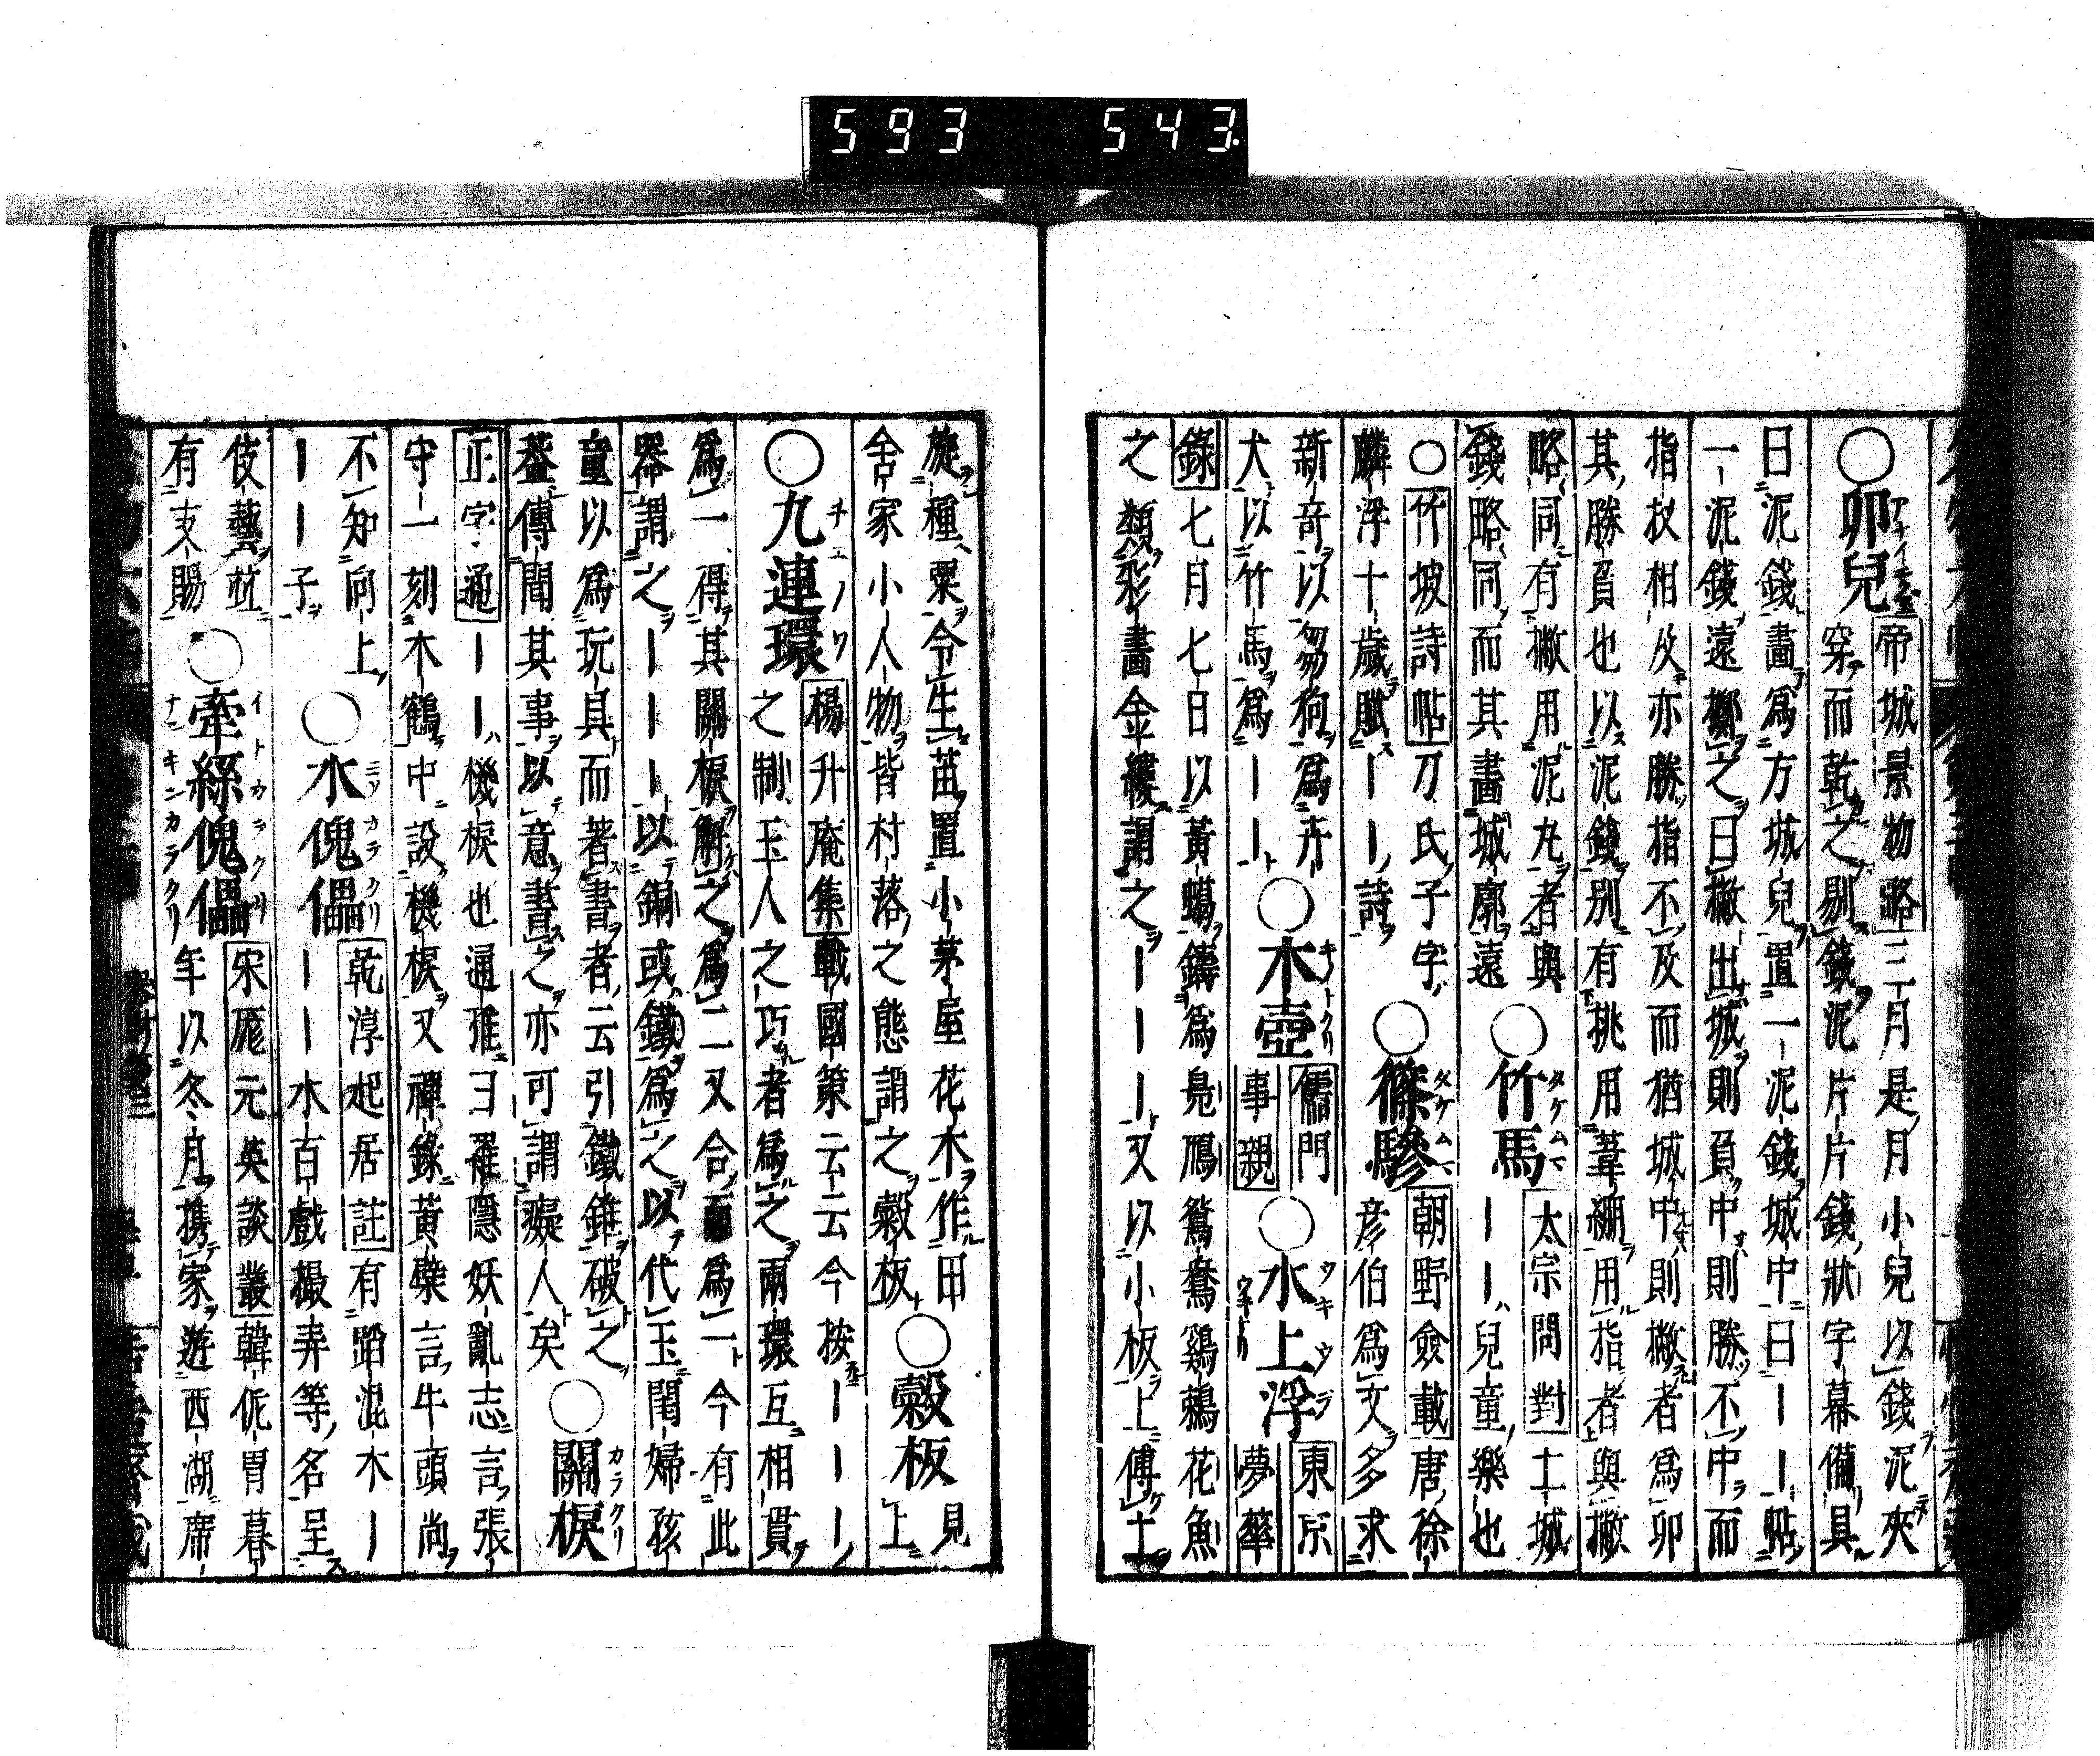 593 543
○卯兒 帝城景物略 三月是月小兒以錢泥夾
穿而乾之剔錢泥片片錢狀字幕備具
曰泥錢畫爲方城兒置一泥錢城中曰ーー帖
一泥錢遠擲之曰撇出城則負中則勝不中而
指杈相及亦勝指不及而猶城中則撇者爲卯
其勝負也以泥錢別有挑用葦繃用指者與撇
略同有撇用泥丸者與
錢略同而其畫城廓遠
○竹馬 太宗問對 土城
ーー兒童樂也
○竹坡詩帖 刀氏子字
麟浮十歲賦ーー詩
○篠驂 朝野僉載 唐徐
彦伯爲文多求
新奇以芻狗爲卉
犬以竹馬爲ーー
○木壺 儒門
事親
○水上浮 東京
夢華
錄 七月七日以黃蠟鑄爲鳧鴈鴛鴦鸂鶒花魚
之類彩畫金縷謂之ーーー又以小板上傅土
旋種粟令生苗置小茅屋花木作田
舍家小人物皆村落之態謂之穀板
○穀板 見
上
○九連環 楊升庵集 戰國策云云今按ーーー
之制玉人之巧者爲之兩環互相貫
爲一得其關棙解之爲二又合而爲一今有此
器謂之ーーー以銅或鐵爲之以代玉閨婦孩
童以爲玩具而著書者云引鐵錐破之
蓋傳聞其事以意書之亦可謂癡人矣
○關棙
正字通 ーー機棙也通雅曰罹隱妖亂志言張
守一刻木鶴中設機棙又禪錄黃檗言牛頭尚
不知向上
ーー子
○水傀儡 乾淳起居註 有踏混木ー
ーー水百戲撮弄等名呈
伎藝並
有支賜
○牽絲傀儡 宋厖元英談叢 韓侂胄暮
年以冬月攜家遊西湖席